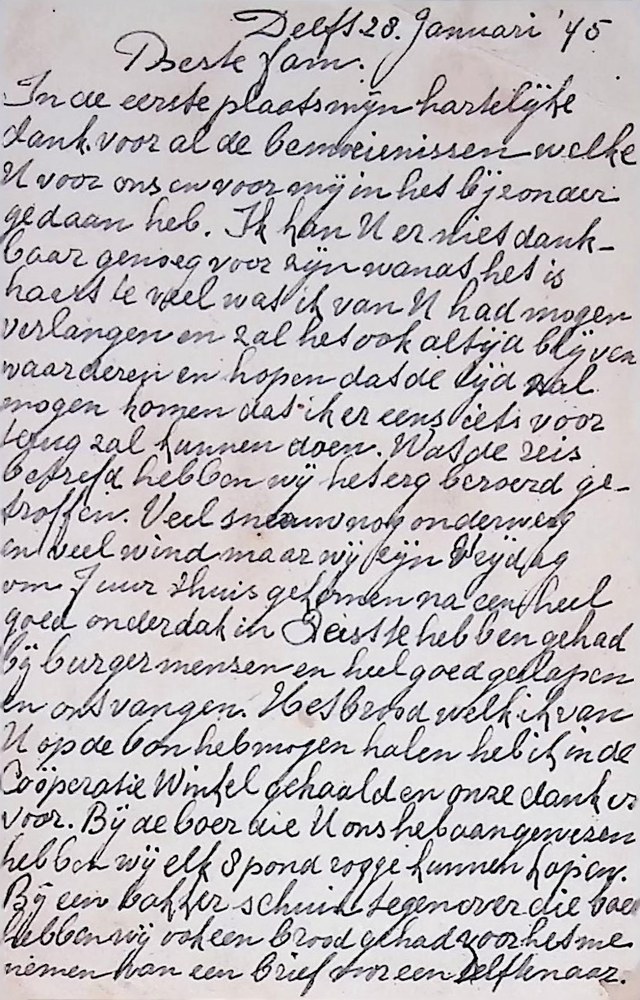 Delft 28. Januari '45
Beste Fam.
In de eerste plaats mijn hartelijke
dank voor al de bemoeienissen welke
U voor ons en voor mij in het bijzonder
gedaan heb. Ik kan U er niet dank-
baar genoeg voor zijn want het is
haast te veel wat ik van U had mogen
verlangen en zal het ook altijd blijven
waarderen en hopen dat de tijd zal
mogen komen dat ik er eens iets voor
terug zal kunnen doen. Wat de reis
betrefd hebben wij het erg beroerd ge-
troffen. Veel sneeuw nog onderweg
en veel wind maar wij zijn Vrijdag
om 7 uur thuis gekomen na een heel
goed onderdak in Zeist te hebben gehad
bij burgermensen en heel goed geslapen
en ontvangen. Het brood welk ik van
U op de bon heb mogen halen heb ik in de
Coöperatie Winkel gehaald en onze dank er
voor. Bij de boer die U ons heb aangewezen
hebben wij elk 8 pond rogge kunnen kopen.
Bij een bakker schuin tegenover die boer
hebben wij ook een brood gehad voor het me
nemen van een brief voor een Delftenaar.